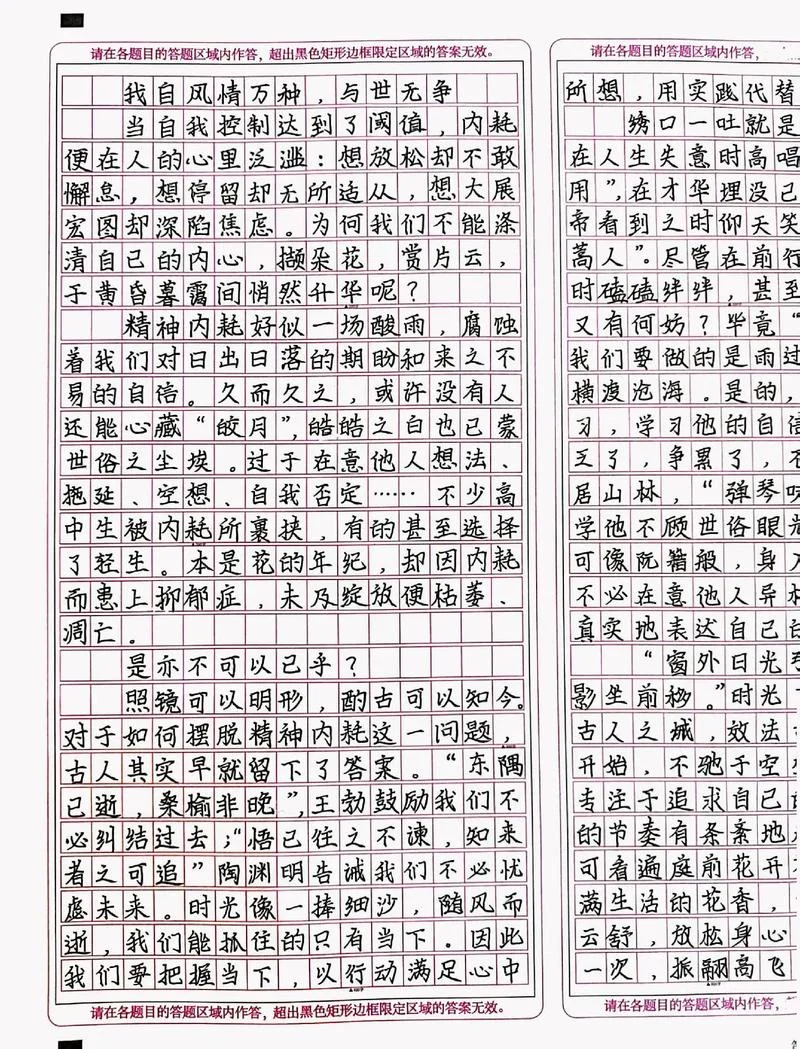 请在各题目的答题区域内作答，超出黑色矩形边框限定区域的答案无效。
我自风情万种，与世无争
当自我控制达到了阈值，内耗
便在人的心里泛滥：想放松却不敢
懈怠，想停留却无所适从，想大展
宏图却深陷焦虑。为何我们不能涤
清自己的内心，撷朵花，赏片云，
于黄昏暮霭间悄然升华呢？
精神内耗好似一场酸雨，腐蚀
着我们对日出日落的期盼和来之不
易的自信。久而久之，或许没有人
还能心藏“皎月”，皓皓之白也已蒙
世俗之尘埃。过于在意他人想法、
拖延、空想、自我否定……不少高
中生被内耗所裹挟，有的甚至选择
了轻生。本是花的年纪，却因内耗
而患上抑郁症，未及绽放便枯萎、
凋亡。
是亦不可以已乎？
照镜可以明形，酌古可以知今。
对于如何摆脱精神内耗这一问题，
古人其实早就留下了答案。“东隅
已逝，桑榆非晚”，王勃鼓励我们不
必纠结过去；“悟已往之不谏，知来
者之可追”陶渊明告诫我们不必忧
虑未来。时光像一捧细沙，随风而
逝，我们能抓住的只有当下。因此
我们要把握当下，以行动满足心中
请在各题目的答题区域内作答，超出黑色矩形边框限定区域的答案无效。
请在各题目的答题区域内作答，
所想，用实践代替
绣口一吐就是
在人生失意时高唱
用”，在才华埋没己
帝看到之时仰天笑
蒿人”。尽管在前行
时磕磕绊绊，甚至
又有何妨？毕竟“
我们要做的是雨过
横渡沧海。是的，
习，学习他的自信
王了，争累了，不
居山林，“弹琴
学他不顾世俗眼光
可像阮籍般，身
不必在意他人异
真实地表达自己的
“窗外日光
影坐前移。”时光
古人之城，效法
开始，不驰于空
专注于追求自己
的节奏有条紊地
可看遍庭前花开
满生活的花香，
云舒，放松身心
一次，振翮高飞
请在各题目的答题区域内作答，